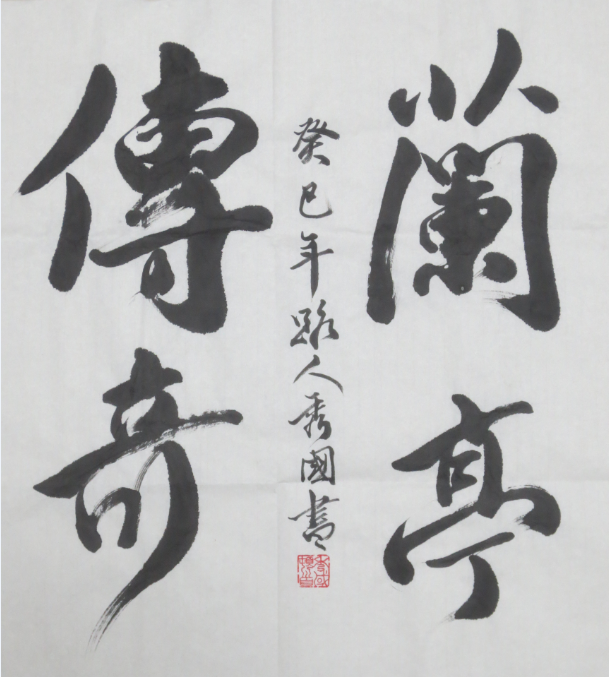 蘭亭
傳奇
癸巳年路人秀國書